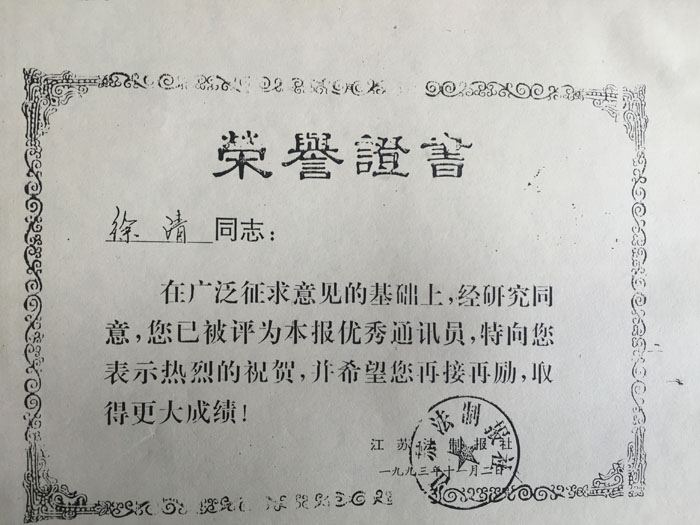 榮譽證書
徐清同志：
在广泛征求意见的基础上，经研究同
意，您已被评为本报优秀通讯员，特向您
表示热烈的祝贺，并希望您再接再励，取
得更大成绩！
江苏法制报社
一九九三年十一月二日
江苏法制报社